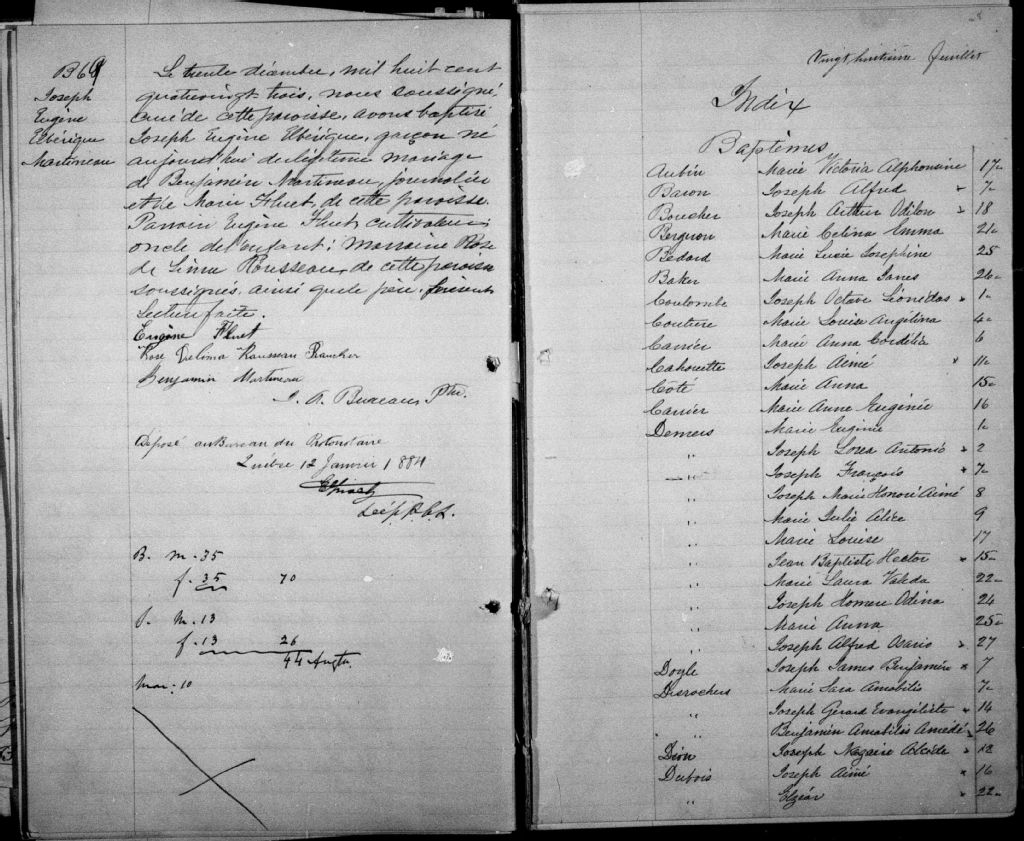 B69
Joseph
Eugène
Elbérique
Martineau
Le trente décembre, mil huit cent
quatrevingt-trois, nous soussigné
curé de cette paroisse, avons baptisé
Joseph Eugène Elbérique, garçon né
aujourd'hui de légitime mariage
de Benjamin Martineau, journalier
et de Marie Fluet, de cette paroisse.
Parrain Eugène Fluet, cultivateur
oncle de l'enfant; Marraine Rose
de Lima Rousseau, de cette paroisse
soussignés ainsi que le père, présent
Lecture faite.
Eugène Fluet
Rose Delima Rousseau
Benjamin Martineau
J. A. Bureau, Ptre.
Déposé au Bureau du Protonotaire
Québec 12 Janvier 1884
Dép. P.C.S.
B. m. 35
f. 35 70
S. m. 13
f. 13 26
44 Augtn.
Mar. 10
Vingt huitième feuillet
Index
Baptêmes
Aubin Marie Victoria Alphonsine 17
Baron Joseph Alfred " 7
Boucher Joseph Arthur Odilon " 18
Bergeron Marie Celina Emma 21
Bedard Marie Lucie Josephine 25
Baker Marie Anna Janes 26
Coulombe Joseph Octave Léonidas " 1
Couture Marie Louise Angélina 4
Carrier Marie Anna Cordélia 6
Cahouette Joseph Aimé " 11
Coté Marie Anna 15
Carrier Marie Anne Eugénie 16
Demers Marie Eugénie 1
" Joseph Antonio " 2
" Joseph François " 7
" Joseph Marie Honoré Aimé 8
" Marie Julie Alice 9
" Marie Louise 17
" Jean Baptiste Hector " 15
" Marie Laura Valeda 22
" Joseph Homere Odina 24
" Marie Anna 25
" Joseph Alfred Osario " 27
Doyle Joseph James Benjamin " 7
Desrochers Marie Sara Amabilis 7
" Joseph Gérard Evangéliste " 14
" Benjamin Amabilis Amedé " 26
Dion Joseph Nazaire Alcide " 12
Dubois Joseph Aimé " 16
" Elzéar " 22